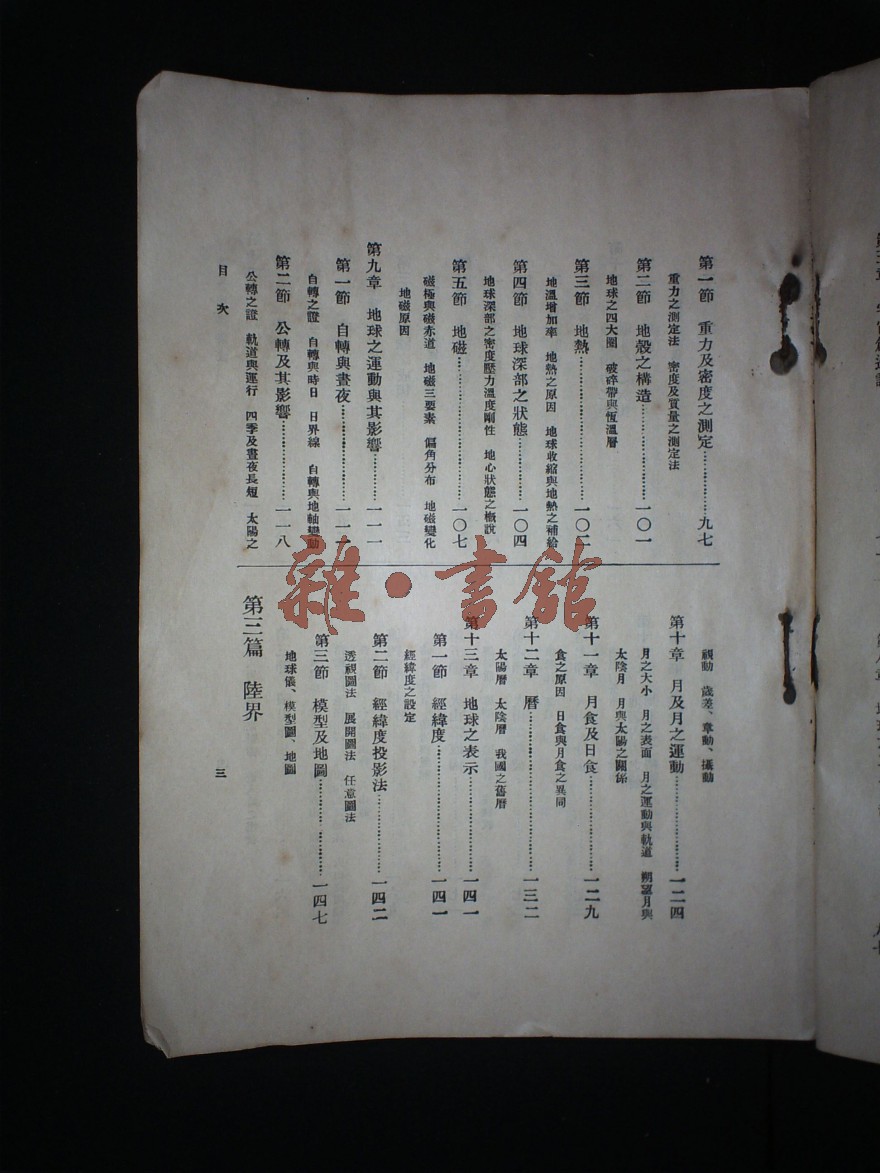 第一節　重力及密度之測定…………九七
重力之測定法　密度及質量之測定法
第二節　地殼之構造…………一〇一
地球之四大圈　破碎帶與恆溫層
第三節　地熱…………一〇二
地溫增加率　地熱之原因　地球收縮與地熱之補給
第四節　地球深部之狀態…………一〇四
地球深部之密度壓力溫度剛性　地心狀態之概說
第五節　地磁…………一〇七
磁極與磁赤道　地磁三要素　偏角分布　地磁變化
地磁原因
第九章　地球之運動與其影響…………一一一
第一節　自轉與晝夜…………一一一
自轉之證　自轉與時日　日界線　自轉與地軸變動
第二節　公轉及其影響…………一一八
公轉之證　軌道與運行　四季及晝夜長短　太陽之
視動　歲差、章動、攝動
第十章　月及月之運動…………一二四
月之大小　月之表面　月之運動與軌道　朔望月與
太陰月　月與太陽之關係
第十一章　月食及日食…………一二九
食之原因　日食與月食之異同
第十二章　曆…………一三二
太陽曆　太陰曆　我國之舊曆
第十三章　地球之表示…………一四一
第一節　經緯度…………一四一
經緯度之設定
第二節　經緯度投影法…………一四二
透視圖法　展開圖法　任意圖法
第三節　模型及地圖…………一四七
地球儀、模型圖、地圖
第三篇　陸界
目次
三
雜·書館